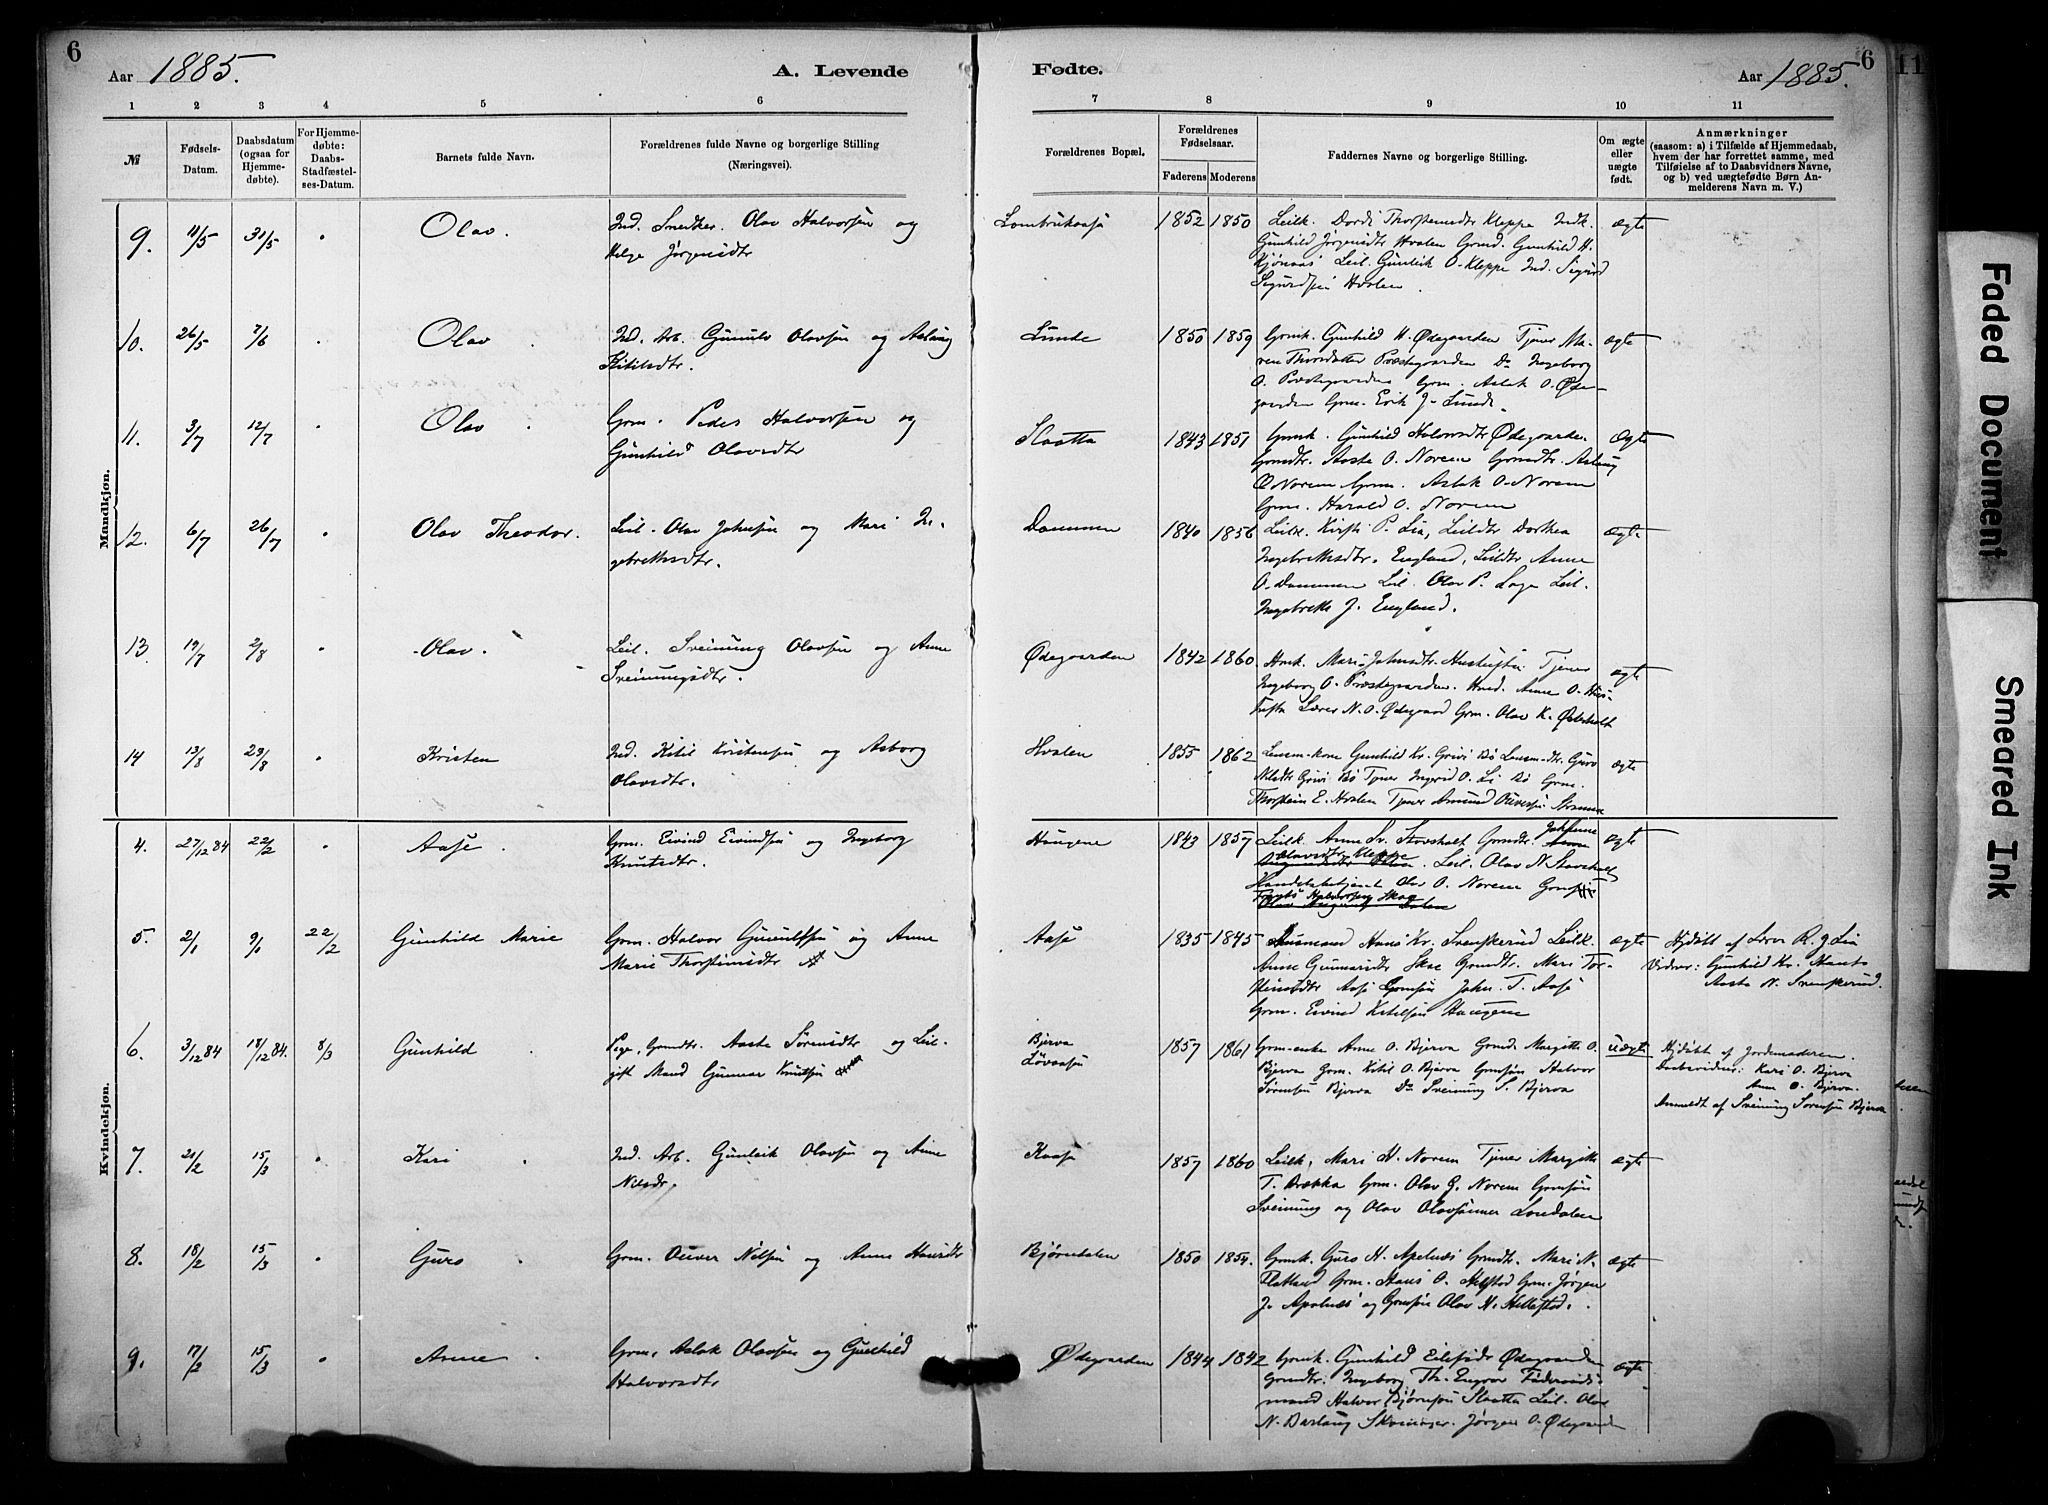 6
Aar 1885.
A. Levende
Fødte.
Aar 1885.
6
11
1 2 3 4 5 6 7 8 9 10 11
№
Fødsels-
Datum.
Daabsdatum
(ogsaa for
Hjemme-
døbte).
For Hjemme-
døbte:
Daabs-
Stadfæstel-
ses-Datum.
Barnets fulde Navn.
Forældrenes fulde Navne og borgerlige Stilling
(Næringsvei).
Forældrenes Bopæl.
Forældrenes
Fødselsaar.
Faderens Moderens
Faddernes Navne og borgerlige Stilling.
Om ægte
eller
uægte
født.
Anmærkninger
(saasom: a) i Tilfælde af Hjemmedaab,
hvem der har forrettet samme, med
Tilføielse af to Daabsvidners Navne,
og b) ved uægtefødte Børn An-
melderens Navn m. V.)
Mandkjøn.
9. 11/5 31/5 " Olav.
Ind. Snedker. Olav Halvorsen og
Helge Jørgensdtr
1852 1850
Leilk. Dordi Thorstensdtr Kleppe Indk.
Gunhild Jørgensdtr Hvalen Grmd. Gunhild H.
Kjønaas Leil. Gunleik O. Kleppe Ind. Sigurd
Sigurdsen Hvalen.
ægte
10. 26/5 7/6 " Olav
Ind. Arb. Gunnulv Olavsen og Aslaug
Kitilsdtr.
Lunde 1850 1859
Grmk. Gunhild H. Ødegaarden Tjener Ma-
ren Thorsdatter Præstegaarden Do Ingeborg
O. Præstegaarden Grm. Aslak O. Øde-
gaarden Grm. Erik J. Lunde.
ægte
11. 3/7 12/7 " Olav
Grm. Peder Halvorsen og
Gunhild Olavsdtr
Slaatta 1843 1851
Grmk. Gunhild Halvorsdtr Ødegaarden
Grmdtr. Aaste O. Norem Grmdtr. Aslaug
O. Norem Grm. Aslak O. Norem
Grm. Harald O. Norem
ægte
12. 6/7 26/7 " Olav Theodor.
Leil. Olav Johnsen og Mari In-
gebrethsdtr.
Dammen 1840 1856
Leilk. Kirsti P. Lia, Leildtr Dorthea
Ingebrethsdtr. England, Leildtr Anne
O. Dammen Leil. Olav P. Laga Leil.
Ingebreth J. England.
ægte
13 19/7 2/8 " Olav.
Leil. Sveinung Olavsen og Anne
Sveinungsdtr.
Ødegaarden 1842 1860
Hmk. Mari Johnsdtr. Hustufta Tjener
Ingeborg O. Præstegaarden. Hmd. Anne O. Hus-
tufta Lærer N. O. Ødegaard Grm. Olav K. Østerholt
ægte
14 13/8 29/8 " Kristen
Ind. Kitil Kristensen og Asborg
Olavsdtr.
Hvalen 1855 1862
Lensm-kone Gunhild Kr. Grivi Bø Lensm-dtr. Guro
Nildtr Grivi Bø Tjener Ingrid O. Li Bø Grm.
Thorstein E. Hvalen Tjener Amund Oliversen Strømme
ægte
Kvindekjøn.
4. 27/12 84 22/2 " Aase
Grm. Eivind Eivindsen og Ingeborg
Knutsdtr.
Haugene 1843 1857
Leilk. Anne Sv. Stavsholt Grmdtr. Johanne
Olavsdtr Kleppe Leil. Olav N. Stavsholt
Handelsbetjent Olav O. Norem Grmsøn
Halvorsen Skoe
ægte
5. 2/1 9/1 22/2 Gunhild Marie
Grm. Halvor Gunulfsen og Anne
Marie Thorsteinsdtr
Aase 1835 1845
Husmand Hans Kr. Svenskerud Leilk.
Anne Gunnarsdtr Skoe Grmdtr. Mari Tor-
steinsdtr Aase Grmsøn John T. Aase
Grm. Eivind Kitilsen Haugene
ægte
Hjdøbt af Lærer R. J. Lia
Vidner: Gunhild Kr. Hanto
Aasta N. Svenskerud.
6. 3/12 84 18/12 84. 8/3 Gunhild
Pige, Grmdtr. Aaste Sørensdtr og Lei-
gift Mand Gunnar Knutsen
Bjerva
Løvaasen
1857 1861
Grm-enke Anne O. Bjerva Grmd. Margitte O.
Bjerva Grm. Kitil O. Bjerva Grmsøn Halvor
Sørensen Bjerva Do Sveinung S. Bjerva
uægte
Hjdøbt af Jordemoderen.
Daabsvidner: Kari O. Bjerva
Anne O. Bjerva.
Anmeldt af Sveinung Sørensen Bjerva
7. 21/2 15/3 " Kari
Ind. Arb. Gunleik Olavsen og Anne
Nilsdr.
Kaasa 1857 1860
Leilk. Mari H. Norem Tjener Margitte
T. Brekka Grm. Olav G. Norem Grmsøn
Sveinung og Olav Olavsønner Londalen
ægte
8. 18/2 15/3 " Guro
Grm. Oliver Nilsen og Anne Hansdtr
Bjørndalen 1850 1854.
Grmk. Guro H. Apelnæs Grmdtr. Mari N.
Flatland Grm. Hans O. Helstad Grm. Jørgen
J. Apelnæs og Grmsøn Olav H. Hellestad.
ægte
9. 17/2 15/3 " Anne
Grm. Aslak Olavsen og Gunhild
Halvorsdtr
Ødegaarden 1844 1842
Grmk. Gunhild Eilefsdr Ødegaarden
Grmdtr. Ingeborg Th. Enggrav Føderaads-
mand Halvor Bjørnsen Slaatta Leil. Olav
N. Barlaug Skoninger. Jørgen O. Ødegaarden
ægte
Faded Document
Smeared Ink